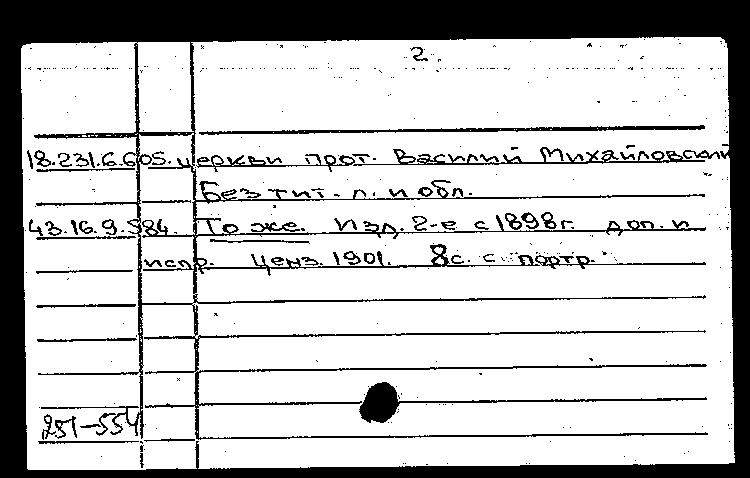 2.
18.231.6.605. церкви прот. Василий Михайловский
Без тит. л. и обл.
43.16.9.584. То же. Изд. 2-е с 1898г. доп. и
испр. Ценз. 1901. 8с. с портр.
251-554